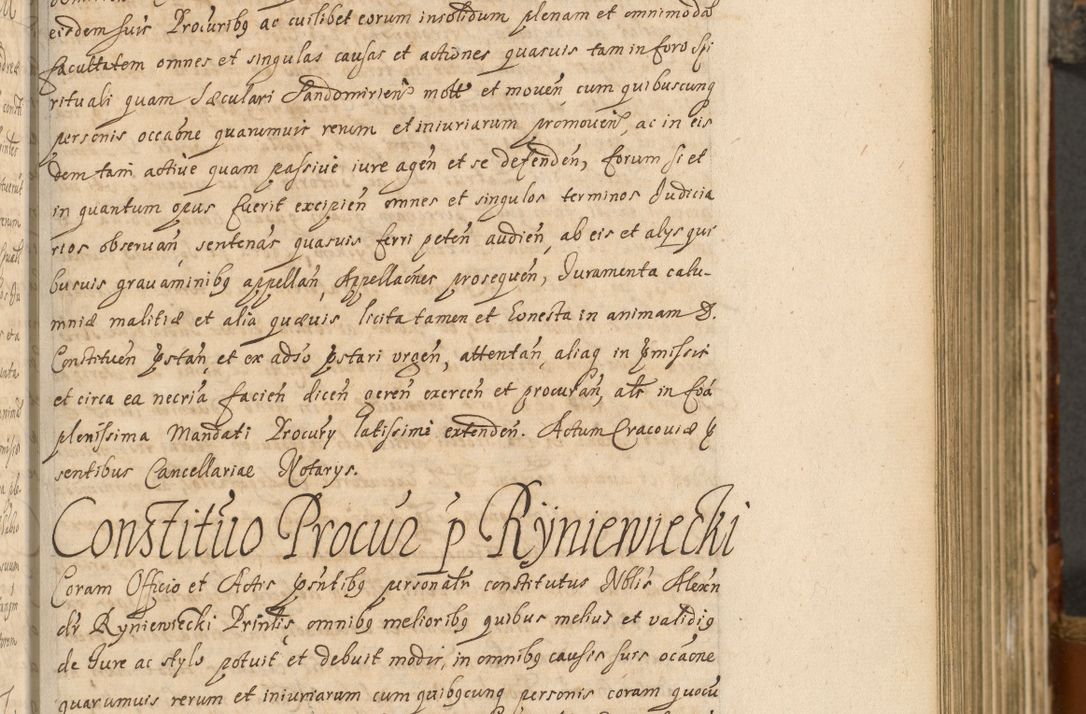 eisdem suis Procuribꝫ ac cuilibet eorum insolidum plenam et omnimodā
facultatem omnes et singulas causas et actiones quasuis tam in foro Spi
rituali quam Sæculari Sandomirien̄ mott et mouen̄ cum quibuscunq
personis occaōne quarumuis rerum et iniuriarum promouen̄, ac in eis
dem tam active quam passive iure agen̄ et se defenden̄, forum si et
in quantum opus fuerit excipien̄ omnes et singulos terminos Judicia
rios observan̄, sentenās quasuis ferri peten̄ audien̄, ab eis et alys qui
busuis gravaminibꝫ appellan̄, Appellaōnes prosequen̄, Juramenta calu-
mniæ malitiæ et alia quævis licita tamen et honesta in animam D.
Constituen̄ p̄stan̄, et ex adso p̄stari urgen̄, attentan̄, aliaq in p̄missis
et circa ea necria, facien̄ dicen̄ geren̄ exercen̄ et procuran̄, alr in foā
plenissima Mandati Procury latissime extenden̄. Actum Cracoviæ p̄
sentibus Cancellariae Notarys.
Constitūo Procur p̄ Rÿniewiecki
Coram Officio et Actis p̄sentibꝫ personalr constitutus Nblis Alexn
dr Ryniewiecki Prin̄lis omnibꝫ melioribꝫ quibus melius et validiꝫ
de Jure ac stylo potuit et debuit modis, in omnibꝫ causis suis ocaōne
quarumuis rerum et iniuriarum cum quibꝫcunq personis coram quocu